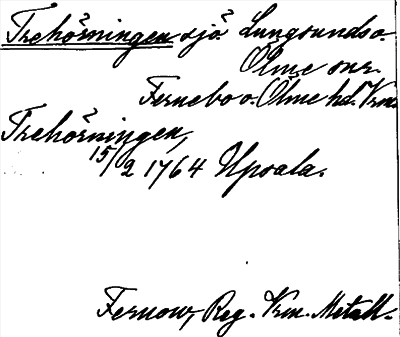 Trehörningen sjö Lungsunds o.
Ölme snr.
Fernebo o. Ölme hd. Vrm.
Trehörningen,
15/2 1764 Upsala.
Fernow, Reg. Vrm. Metall.